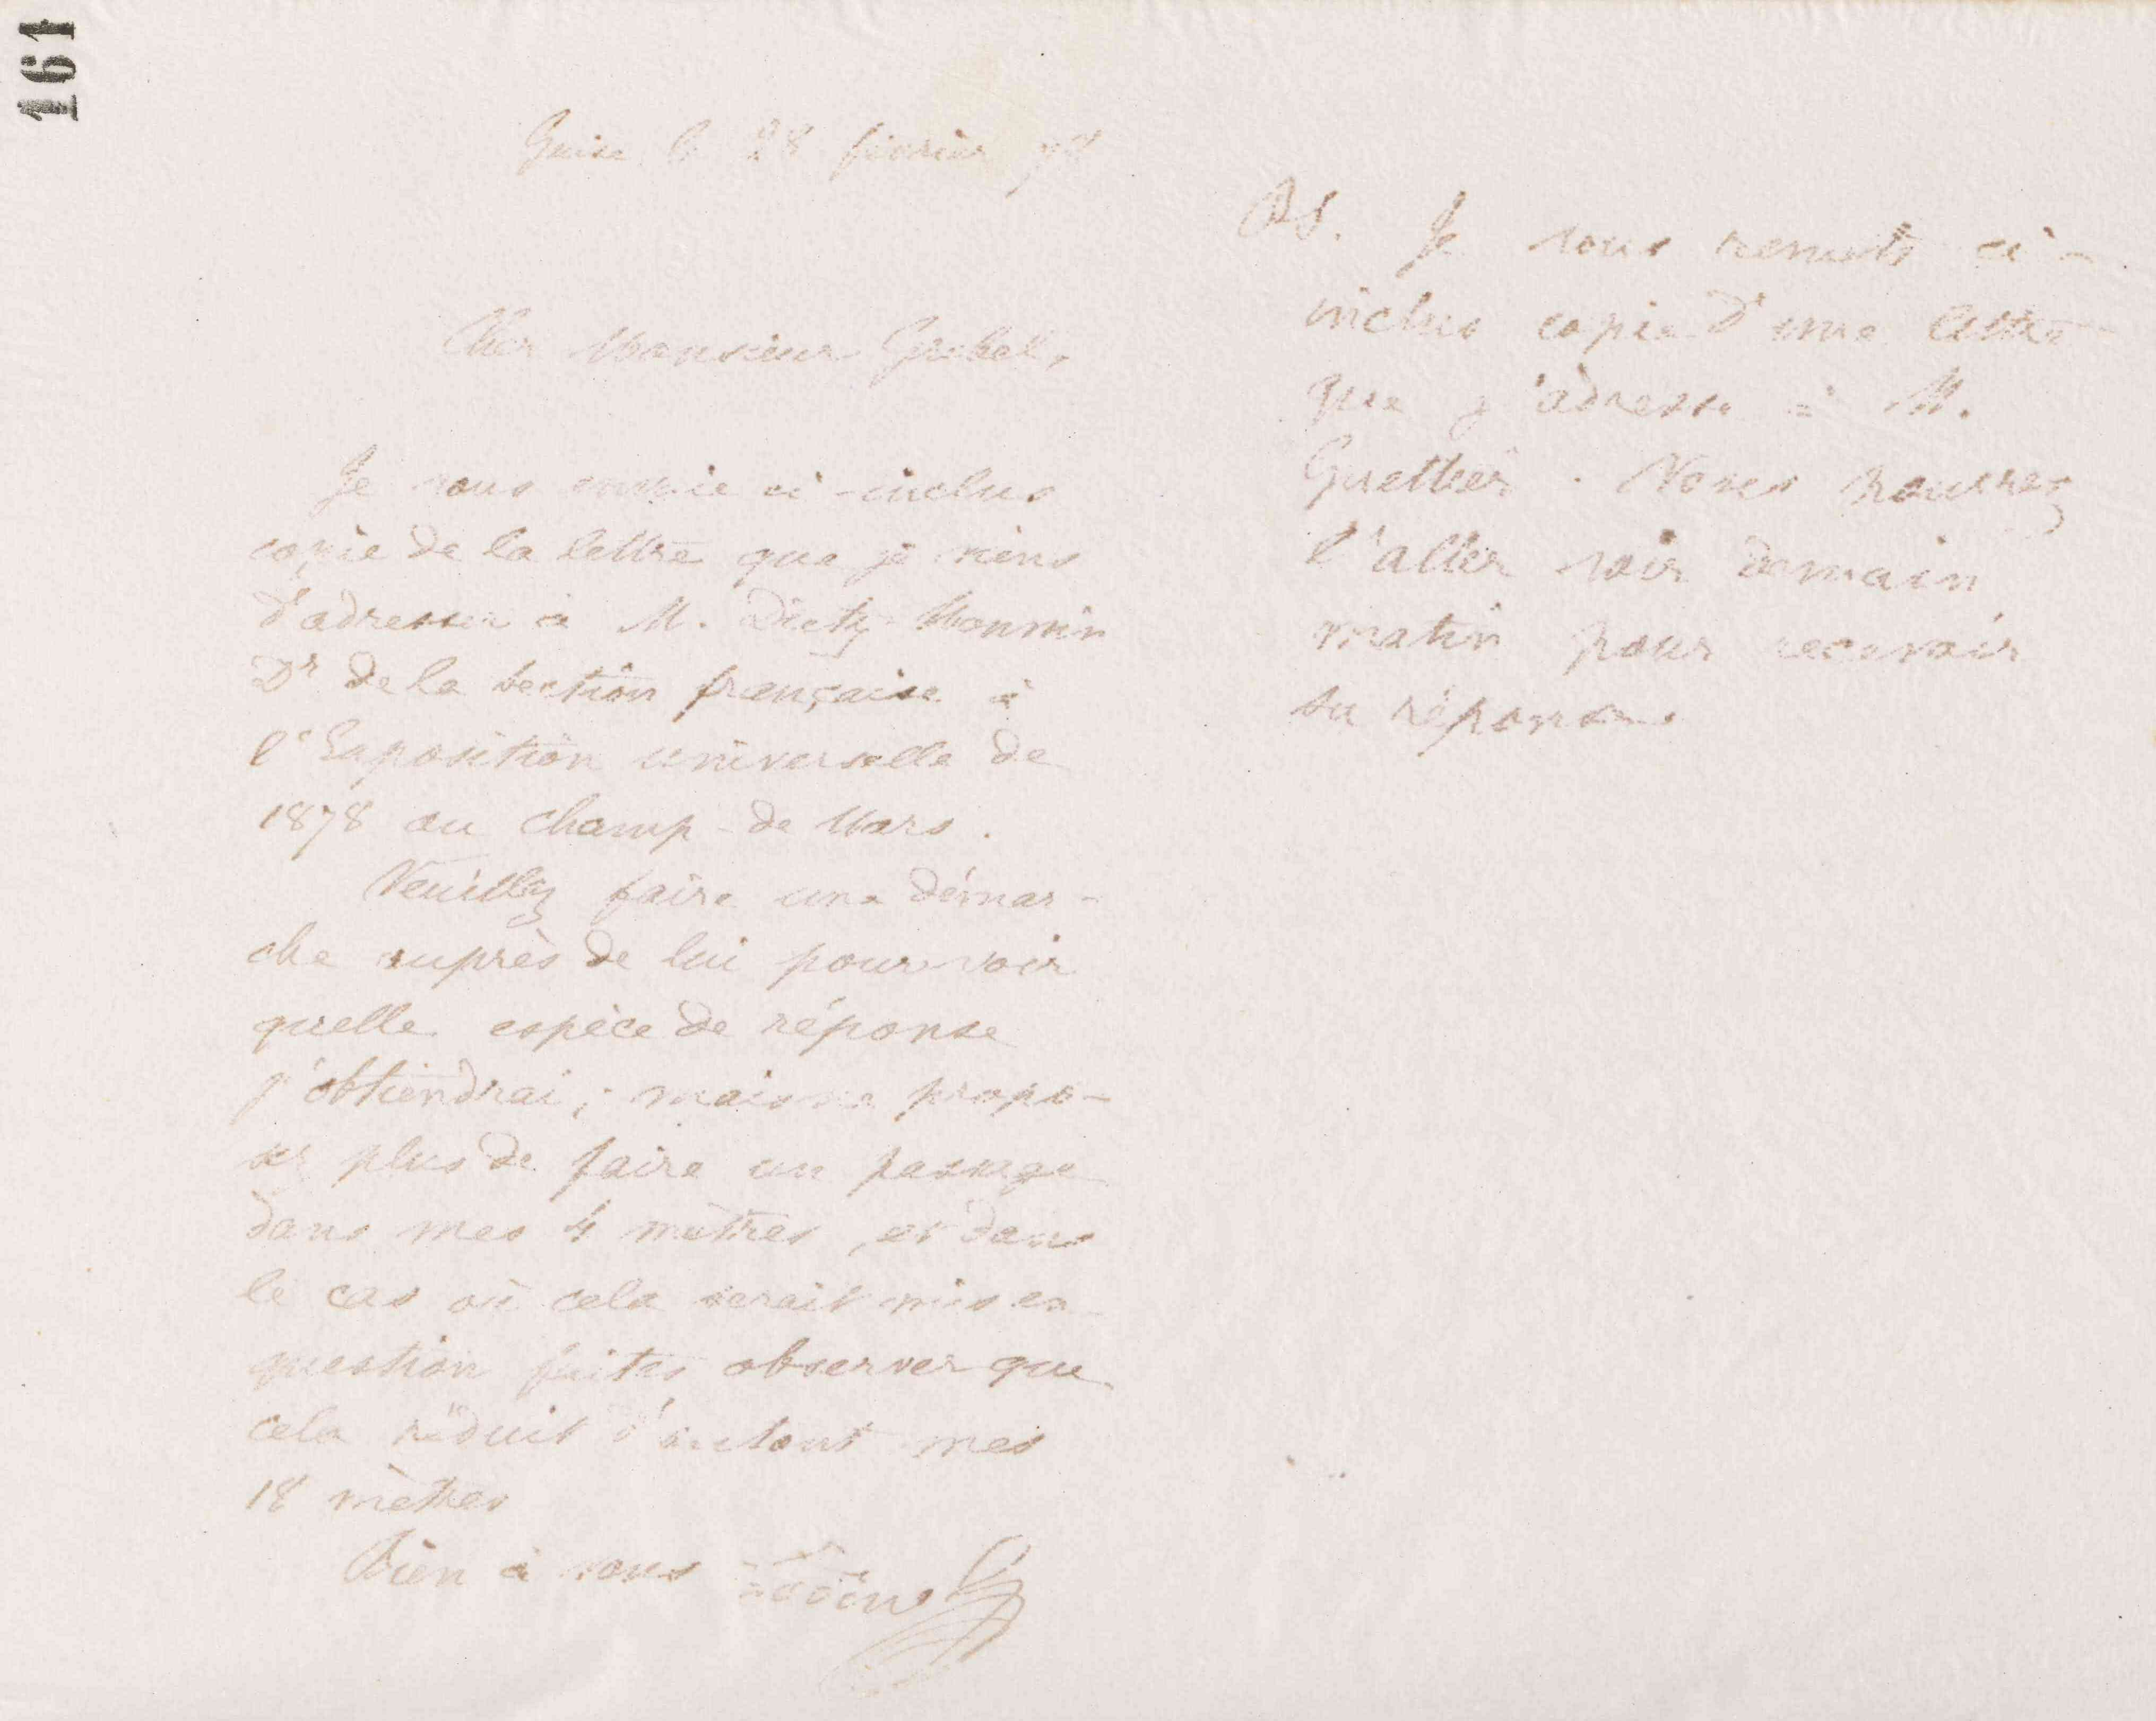 161
Guise le 28 février 78
Cher Monsieur Grebel,
Je vous envoie ci-inclus
copie de la lettre que je viens
d'adresser à M. Dietz Monnin
Dr de la section française à
l'Exposition universelle de
1878 au Champ-de Mars.
Veuillez faire une démar-
che auprès de lui pour voir
quelle espèce de réponse
j'obtiendrai; mais ne propo-
sez plus de faire un passage
dans mes 4 mètres, et dans
le cas où cela serait mis en
question faites observer que
cela réduit d'autant mes
18 mètres
Bien à vous Godin
PS. Je vous remets ci-
inclus copie d'une lettre
que j'adresse à M.
Guettier. Vous pourrez
l'aller voir demain
matin pour recevoir
sa réponse.